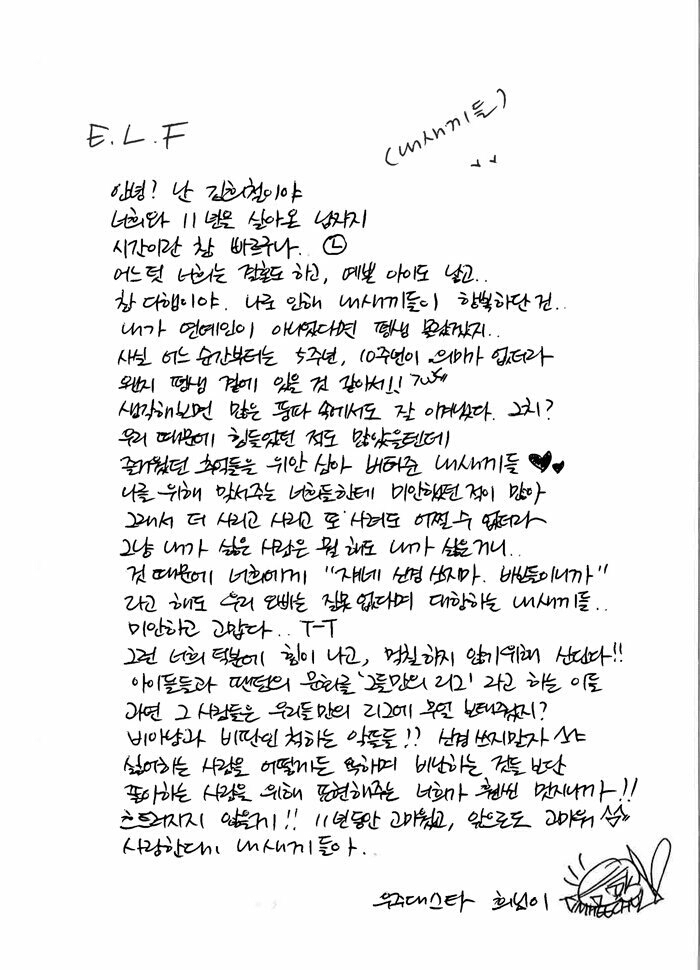 E.L.F
(내새끼들)
안녕? 난 김희철이야
너희와 11년을 살아온 남자지
시간이란 참 빠르구나..
어느덧 너희는 결혼도 하고, 예쁜 아이도 낳고..
참 다행이야. 나로 인해 내새끼들이 행복하단 건..
내가 연예인이 아니었다면 평생 몰랐겠지..
사실 어느 순간부터는 5주년, 10주년이 의미가 없더라
왠지 평생 곁에 있을 것 같아서!!
생각해보면 많은 풍파 속에서도 잘 이겨냈다. 그치?
우리 때문에 힘들었던 적도 많았을텐데
즐거웠던 추억들을 위안 삼아 버텨준 내새끼들 ♥♥
나를 위해 맞서주는 너희들한테 미안했던 적이 많아
그래서 더 사리고 사리고 또 사려도 어쩔 수 없더라
그냥 내가 싫은 사람은 뭘 해도 내가 싫은거니..
것 때문에 너희에게 "쟤네 신경 쓰지마. 바보들이니까"
라고 해도 우리 오빠는 잘못 없다며 대항하는 내새끼들..
미안하고 고맙다.. T-T
그런 너희 덕분에 힘이 나고, 멈칫하지 않기 위해 산단다!!
아이돌들과 팬덤의 문화를 '그들만의 리그' 라고 하는 이들
과연 그 사람들은 우리들만의 리그에 무얼 보태줬지?
비아냥과 비판인 척하는 악플들!! 신경 쓰지말자
싫어하는 사람을 어떻게든 욕하며 비난하는 것들 보단
좋아하는 사람을 위해 표현해주는 너희가 훨씬 멋지니까!!
흐트러지지 않을게!! 11년동안 고마웠고, 앞으로도 고마워
사랑한다 내새끼들아..
우주대스타 희님이